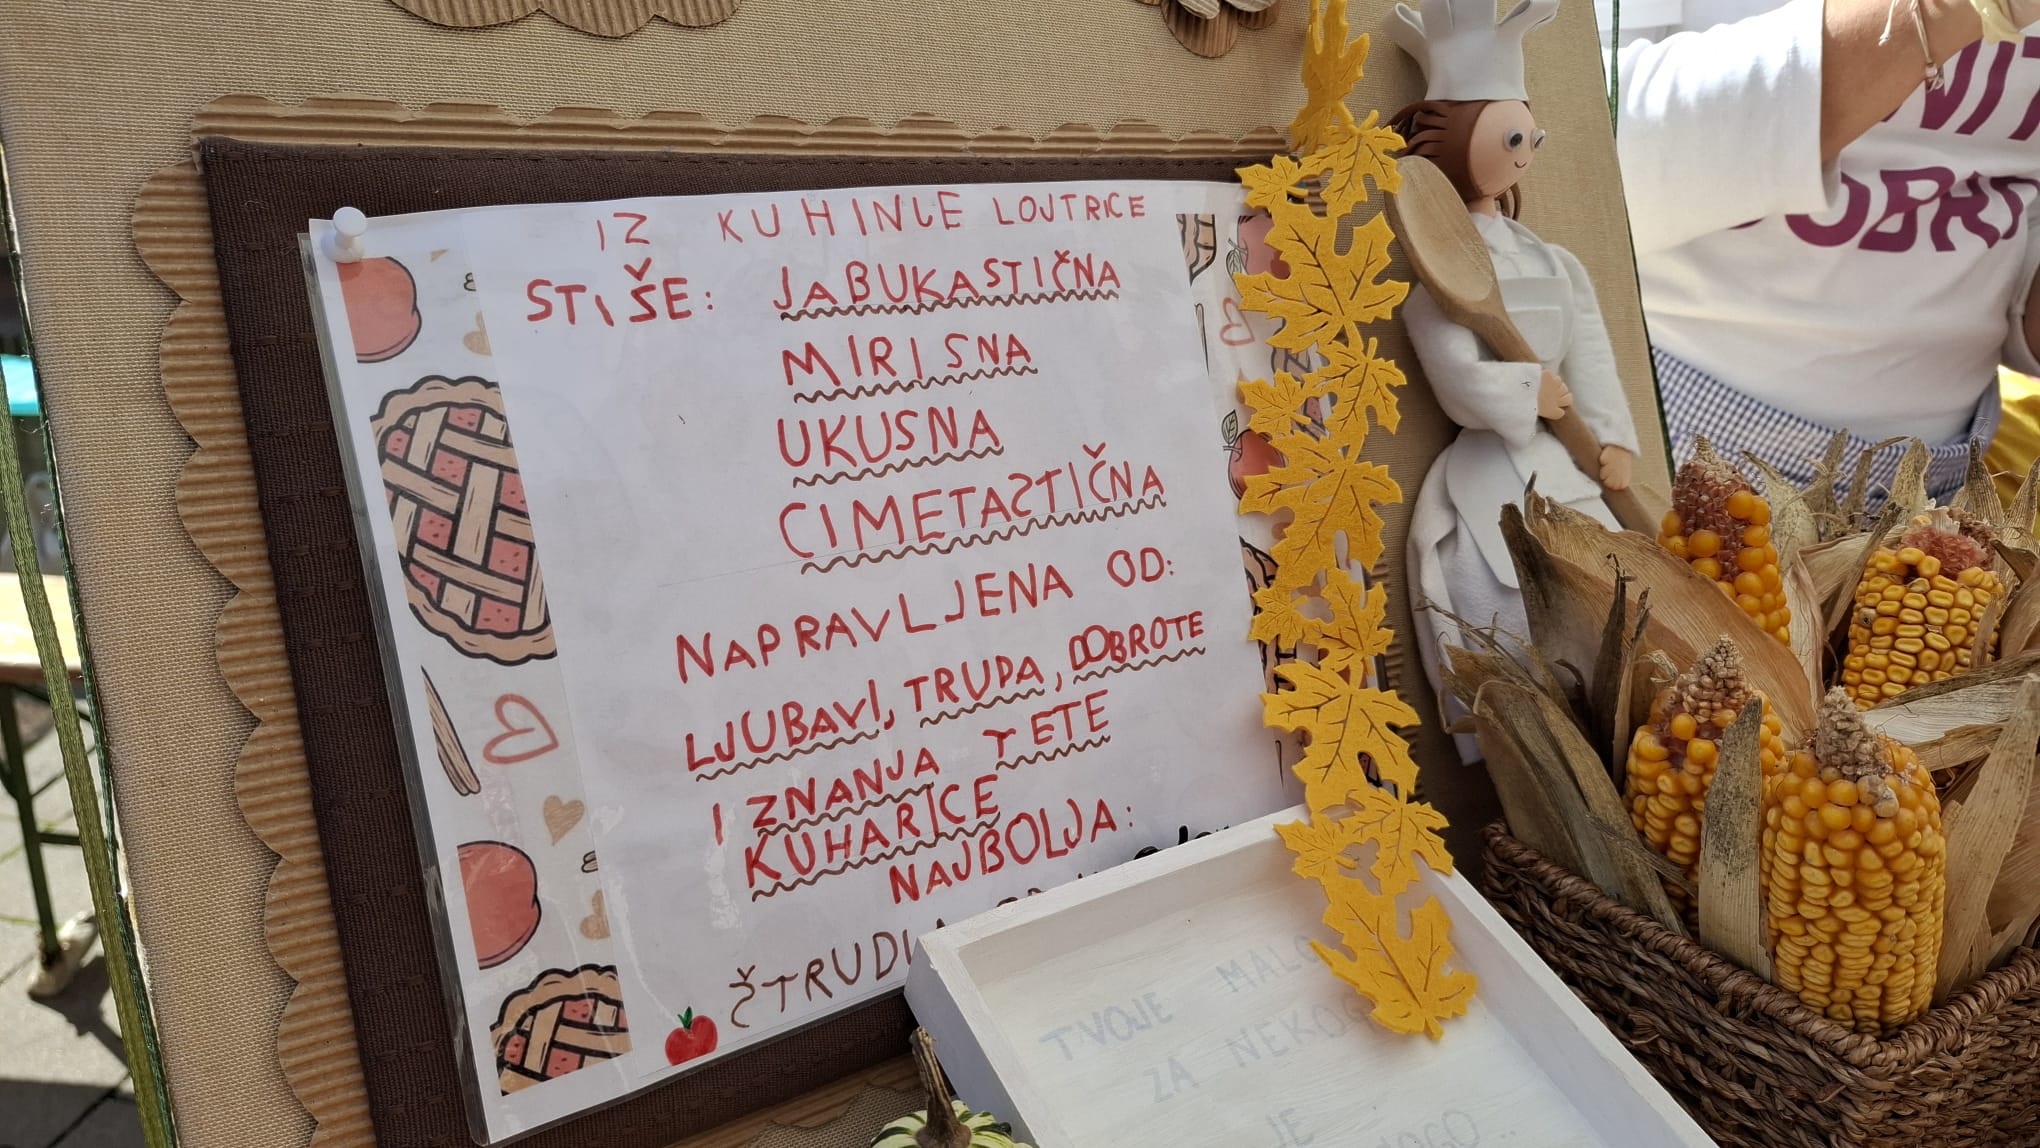 IZ KUHINJE LOJTRICE
STIŠE: JABUKASTIČNA
MIRISNA
UKUSNA
CIMETASTIČNA
NAPRAVLJENA OD:
LJUBAVI, TRUDA, DOBROTE
I ZNANJA TETE
KUHARICE
NAJBOLJA:
TVOJE MALO
ZA NEKOGA
JE